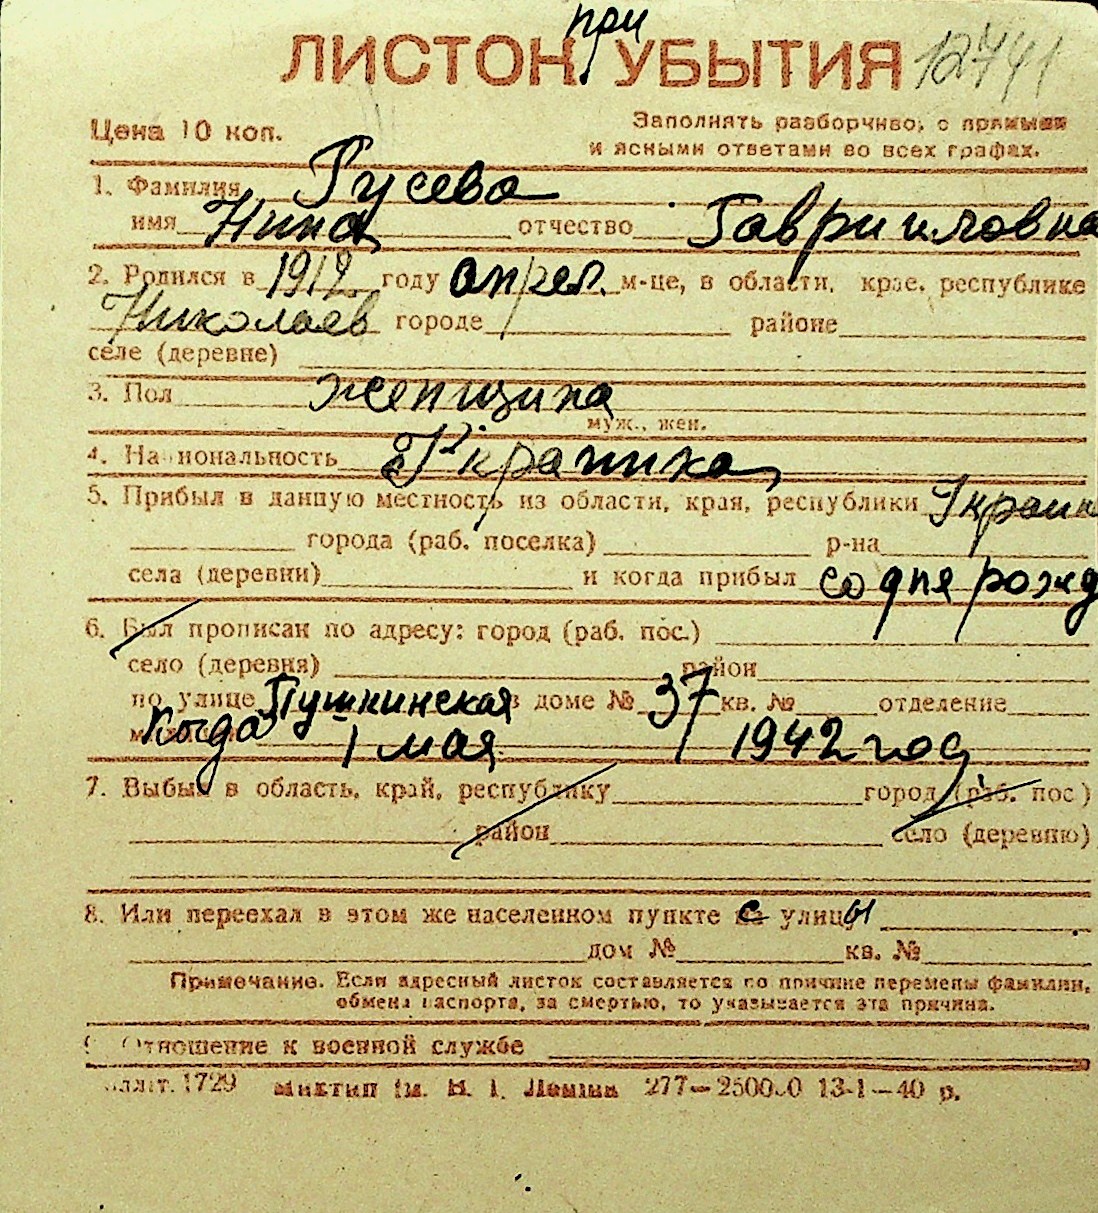 при
ЛИСТОК УБЫТИЯ 12741
Цена 10 коп.
Заполнять разборчиво, с прямыми
и ясными ответами во всех графах.
1. Фамилия Гусева
имя Нина отчество Гаврииловна
2. Родился в 1912 году апрел. м-це, в области, крае, республике
Николаев городе районе
селе (деревне)
3. Пол женщина
муж., жен.
4. Национальность Украинка
5. Прибыл в данную местность из области, края, республики Украин
города (раб. поселка) р-на
села (деревни) и когда прибыл со дня рожд
6. Был прописан по адресу: город (раб. пос.)
село (деревня) район
по улице Пушкинская в доме № 37 кв. № отделение
Когда 1 мая 1942 год
7. Выбыл в область, край, республику город (раб. пос)
район село (деревню)
8. Или переехал в этом же населенном пункте с улицы
дом № кв. №
Примечание. Если адресный листок составляется по причине перемены фамилии,
обмена паспорта, за смертью, то указывается эта причина.
9. Отношение к военной службе
1729 им. В. І. Леніна 277—250000 13-1—40 р.